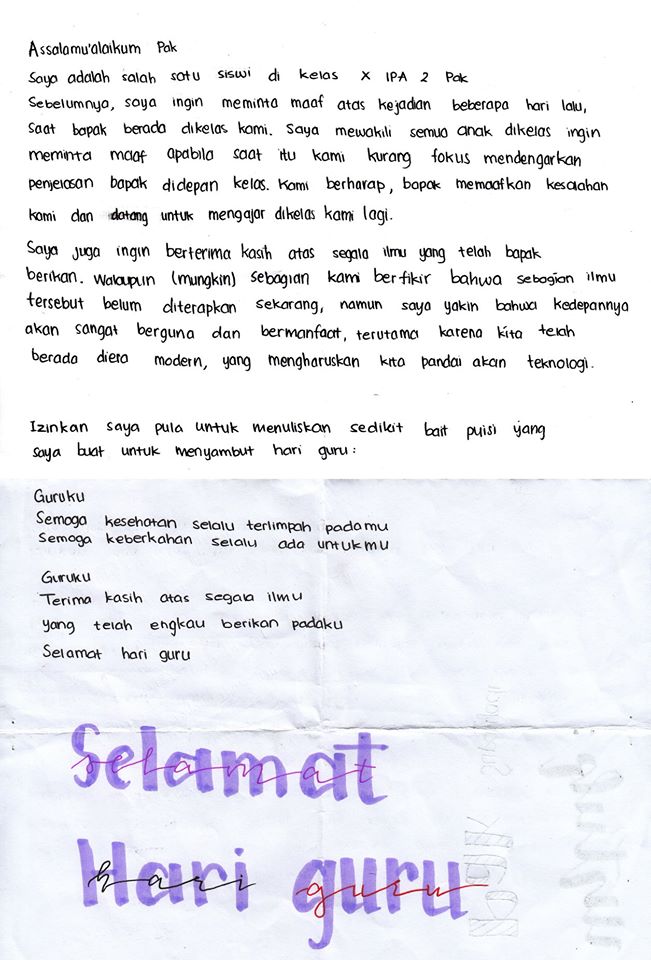 Assalamu'alaikum Pak
Saya adalah salah satu siswi di kelas X IPA 2 Pak
Sebelumnya, saya ingin meminta maaf atas kejadian beberapa hari lalu,
saat bapak berada dikelas kami. Saya mewakili semua anak dikelas ingin
meminta maaf apabila saat itu kami kurang fokus mendengarkan
penjelasan bapak didepan kelas. Kami berharap, bapak memaafkan kesalahan
kami dan datang untuk mengajar dikelas kami lagi.
Saya juga ingin berterima kasih atas segala ilmu yang telah bapak
berikan. Walaupun (mungkin) sebagian kami berfikir bahwa sebagian ilmu
tersebut belum diterapkan sekarang, namun saya yakin bahwa kedepannya
akan sangat berguna dan bermanfaat, terutama karena kita telah
berada diera modern, yang mengharuskan kita pandai akan teknologi.
Izinkan saya pula untuk menuliskan sedikit bait puisi yang
saya buat untuk menyambut hari guru:
Guruku
Semoga kesehatan selalu terlimpah padamu
Semoga keberkahan selalu ada untukmu
Guruku
Terima kasih atas segala ilmu
yang telah engkau berikan padaku
Selamat hari guru
Selamat
selamat
Hari guru
hari guru